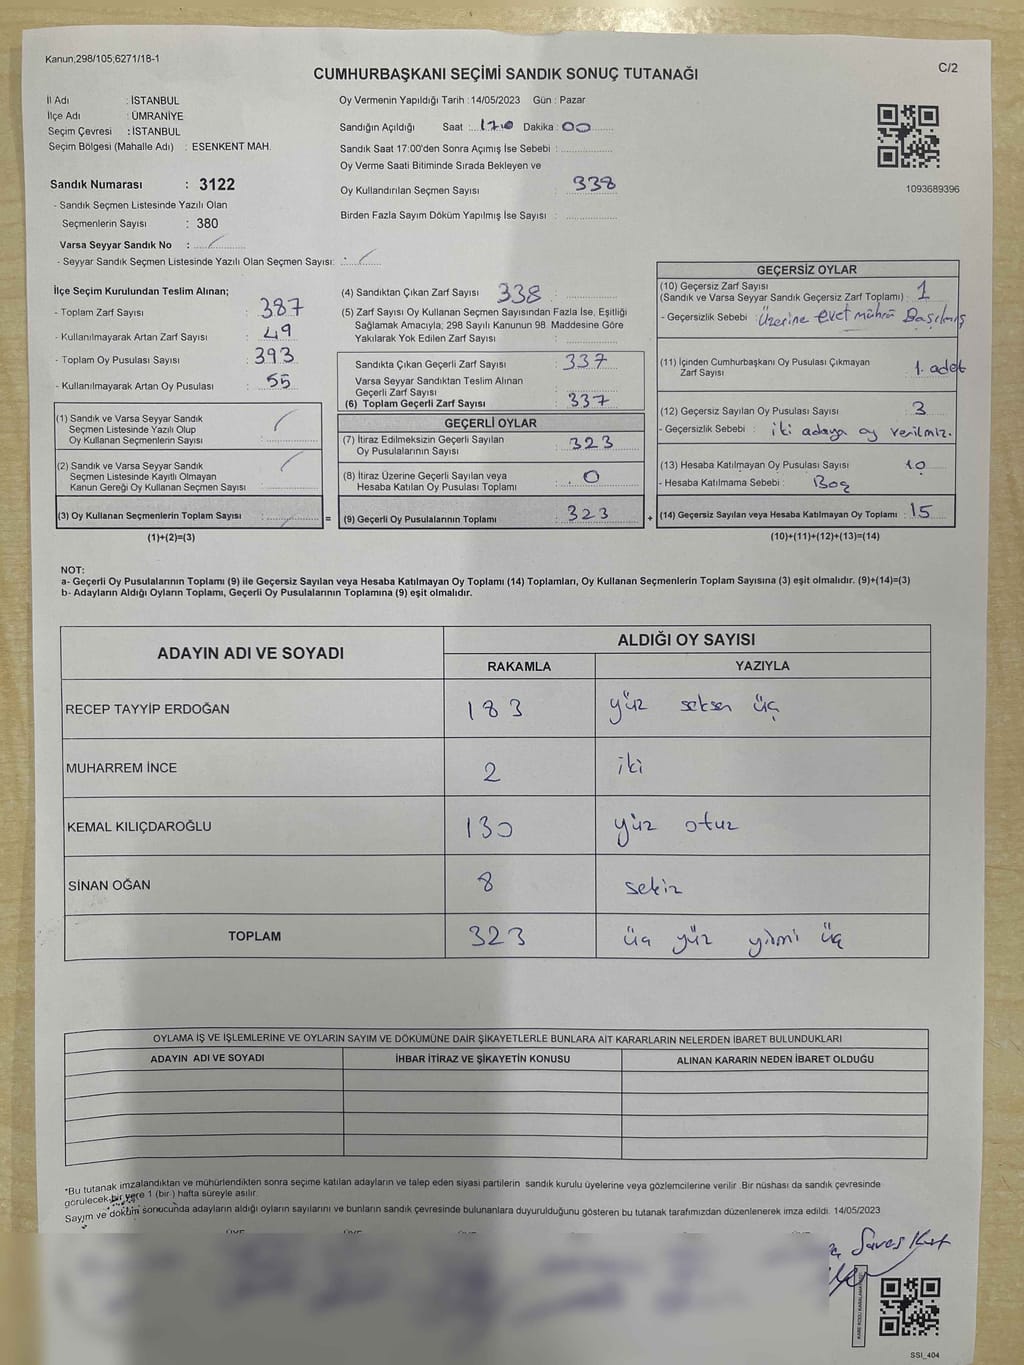 Kanun;298/105;6271/18-1
CUMHURBAŞKANI SEÇİMİ SANDIK SONUÇ TUTANAĞI
C/2
İl Adı : İSTANBUL
İlçe Adı : ÜMRANİYE
Seçim Çevresi : İSTANBUL
Seçim Bölgesi (Mahalle Adı) : ESENKENT MAH.
Sandık Numarası : 3122
- Sandık Seçmen Listesinde Yazılı Olan
Seçmenlerin Sayısı : 380
Varsa Seyyar Sandık No :
- Seyyar Sandık Seçmen Listesinde Yazılı Olan Seçmen Sayısı:
Oy Vermenin Yapıldığı Tarih :14/05/2023 Gün : Pazar
Sandığın Açıldığı Saat : 17.0 Dakika : 00
Sandık Saat 17:00'den Sonra Açımış İse Sebebi :
Oy Verme Saati Bitiminde Sırada Bekleyen ve
Oy Kullandırılan Seçmen Sayısı : 338
Birden Fazla Sayım Döküm Yapılmış İse Sayısı :
1093689396
İlçe Seçim Kurulundan Teslim Alınan;
- Toplam Zarf Sayısı : 387
- Kullanılmayarak Artan Zarf Sayısı : 49
- Toplam Oy Pusulası Sayısı : 393
- Kullanılmayarak Artan Oy Pusulası : 55
(1) Sandık ve Varsa Seyyar Sandık
Seçmen Listesinde Yazılı Olup
Oy Kullanan Seçmenlerin Sayısı :
(2) Sandık ve Varsa Seyyar Sandık
Seçmen Listesinde Kayıtlı Olmayan
Kanun Gereği Oy Kullanan Seçmen Sayısı :
(3) Oy Kullanan Seçmenlerin Toplam Sayısı :
=
(1)+(2)=(3)
(4) Sandıktan Çıkan Zarf Sayısı 338 :
(5) Zarf Sayısı Oy Kullanan Seçmen Sayısından Fazla İse, Eşitliği
Sağlamak Amacıyla; 298 Sayılı Kanunun 98. Maddesine Göre
Yakılarak Yok Edilen Zarf Sayısı :
Sandıkta Çıkan Geçerli Zarf Sayısı : 337
Varsa Seyyar Sandıktan Teslim Alınan
Geçerli Zarf Sayısı :
(6) Toplam Geçerli Zarf Sayısı : 337
GEÇERLİ OYLAR
(7) İtiraz Edilmeksizin Geçerli Sayılan
Oy Pusulalarının Sayısı : 323
(8) İtiraz Üzerine Geçerli Sayılan veya
Hesaba Katılan Oy Pusulası Toplamı : 0
(9) Geçerli Oy Pusulalarının Toplamı : 323
+
GEÇERSİZ OYLAR
(10) Geçersiz Zarf Sayısı
(Sandık ve Varsa Seyyar Sandık Geçersiz Zarf Toplamı) : 1
- Geçersizlik Sebebi : Üzerine evet mührü Basılmış
(11) İçinden Cumhurbaşkanı Oy Pusulası Çıkmayan
Zarf Sayısı : 1. adet
(12) Geçersiz Sayılan Oy Pusulası Sayısı : 3
- Geçersizlik Sebebi : iki adaya oy verilmiz.
(13) Hesaba Katılmayan Oy Pusulası Sayısı : 10
- Hesaba Katılmama Sebebi : Boş
(14) Geçersiz Sayılan veya Hesaba Katılmayan Oy Toplamı : 15
(10)+(11)+(12)+(13)=(14)
NOT:
a- Geçerli Oy Pusulalarının Toplamı (9) ile Geçersiz Sayılan veya Hesaba Katılmayan Oy Toplamı (14) Toplamları, Oy Kullanan Seçmenlerin Toplam Sayısına (3) eşit olmalıdır. (9)+(14)=(3)
b- Adayların Aldığı Oyların Toplamı, Geçerli Oy Pusulalarının Toplamına (9) eşit olmalıdır.
ADAYIN ADI VE SOYADI
ALDIĞI OY SAYISI
RAKAMLA YAZIYLA
RECEP TAYYİP ERDOĞAN 183 yüz seksen üç
MUHARREM İNCE 2 iki
KEMAL KILIÇDAROĞLU 130 yüz otuz
SİNAN OĞAN 8 sekiz
TOPLAM 323 üç yüz yirmi üç
OYLAMA İŞ VE İŞLEMLERİNE VE OYLARIN SAYIM VE DÖKÜMÜNE DAİR ŞİKAYETLERLE BUNLARA AİT KARARLARIN NELERDEN İBARET BULUNDUKLARI
ADAYIN ADI VE SOYADI İHBAR İTİRAZ VE ŞİKAYETİN KONUSU ALINAN KARARIN NEDEN İBARET OLDUĞU
*Bu tutanak imzalandıktan ve mühürlendikten sonra seçime katılan adayların ve talep eden siyasi partilerin sandık kurulu üyelerine veya gözlemcilerine verilir .Bir nüshası da sandık çevresinde
görülecek bir yere 1 (bir ) hafta süreyle asılır.
Sayım ve döküm sonucunda adayların aldığı oyların sayılarını ve bunların sandık çevresinde bulunanlara duyurulduğunu gösteren bu tutanak tarafımızdan düzenlenerek imza edildi. 14/05/2023
Savaş Kurt
SSI_404